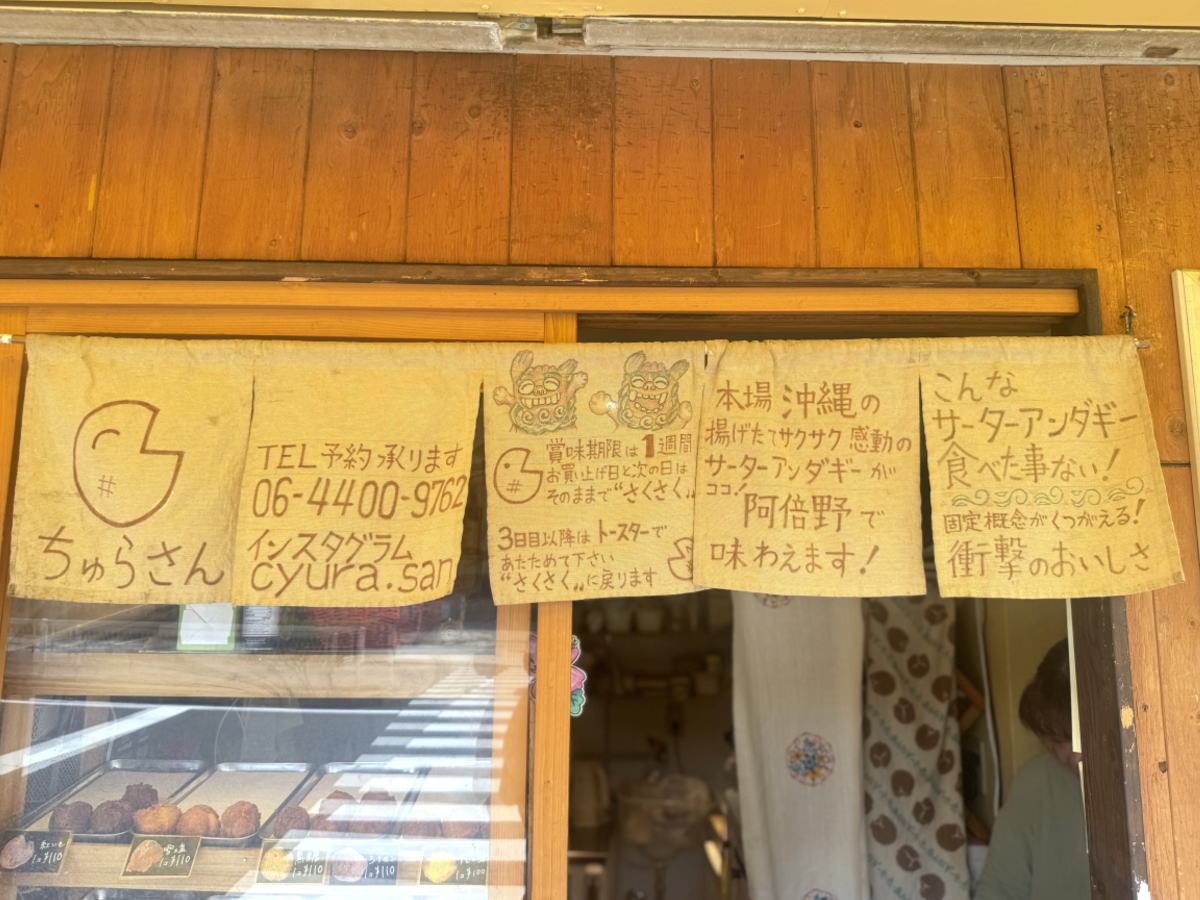 ちゅらさん
TEL予約承ります
06-4400-9762
インスタグラム
cyura.san
賞味期限は1週間
お買い上げ日と次の日は
そのままで“さくさく„
3日目以降はトースターで
あたためて下さい
“さくさく„に戻ります
本場沖縄の
揚げたてサクサク感動の
サーターアンダギーが
ココ!
阿倍野で
味わえます!
こんな
サーターアンダギー
食べた事ない!
固定概念がくつがえる!
衝撃のおいしさ
紅いも
1コ¥110
1コ¥110
¥110
1コ¥110
1コ¥100